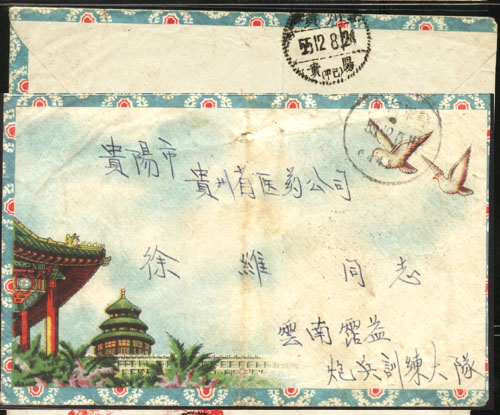 55.12.8.24
貴陽
貴陽市
貴州省医药公司
徐維同志
雲南霑益
炮兵訓練大隊